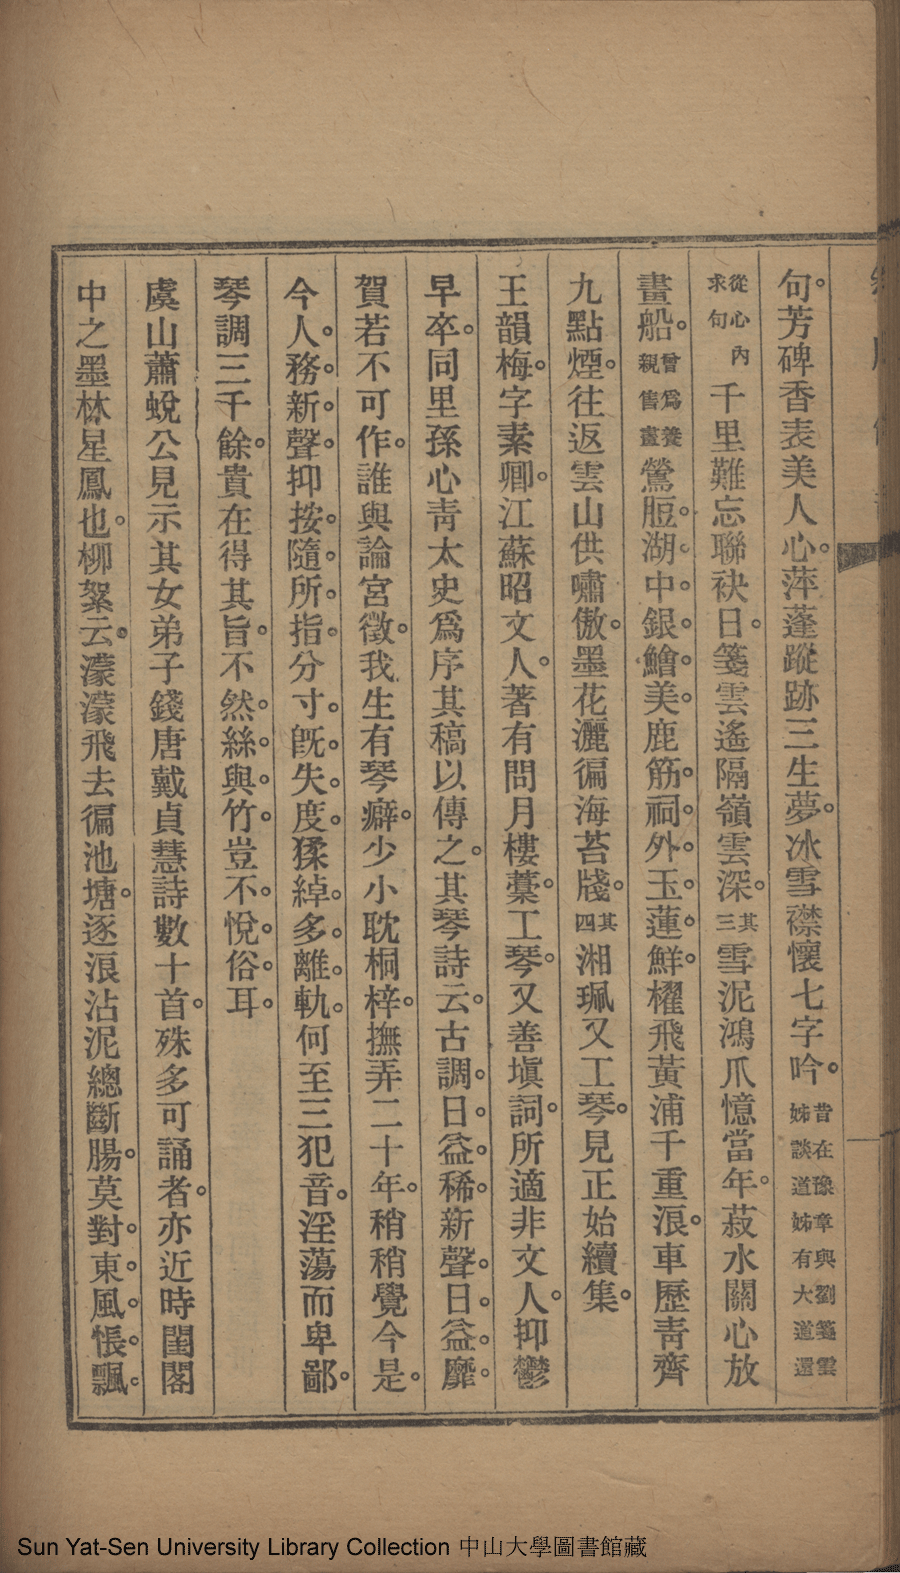 句。芳碑香表美人心。萍蓬蹤跡三生夢。冰雪襟懷七字吟。昔在豫章與劉箋雲姊談道姊有大道還
從心內求句千里難忘聯袂日。箋雲遙隔嶺雲深。其三雪泥鴻爪憶當年。菽水關心放
畫船。曾爲養親售畫鶯脰。湖。中。銀。鱠。美。鹿筋。祠。外。玉。蓮。鮮。櫂飛黃浦千重浪。車歷靑齊
九點煙。往返雲山供嘯傲。墨花灑徧海苔牋。其四湘珮又工琴。見正始續集。
王韻梅。字素卿。江蘇昭文人。著有問月樓藁。工琴。又善塡詞。所適非文人。抑鬱
早卒。同里孫心靑太史爲序其稿以傳之。其琴詩云。古調。日。益。稀。新聲。日。益。靡。
賀若不可作。誰與論宮徵。我生有琴癖。少小耽桐梓。撫弄二十年。稍稍覺今是。
今人。務。新。聲。抑按。隨。所。指。分寸。旣。失。度。猱綽。多。離。軌。何至三犯音。淫蕩而卑鄙。
琴調三千餘。貴在得其旨。不然。絲。與。竹。豈不。悅。俗。耳。
虞山蕭蛻公見示其女弟子錢唐戴貞慧詩數十首。殊多可誦者。亦近時閨閣
中之墨林星鳳也。柳絮云。濛濛飛去徧池塘。逐浪沾泥總斷腸。莫對。東。風。悵。飄。
Sun Yat-Sen University Library Collection 中山大學圖書館藏